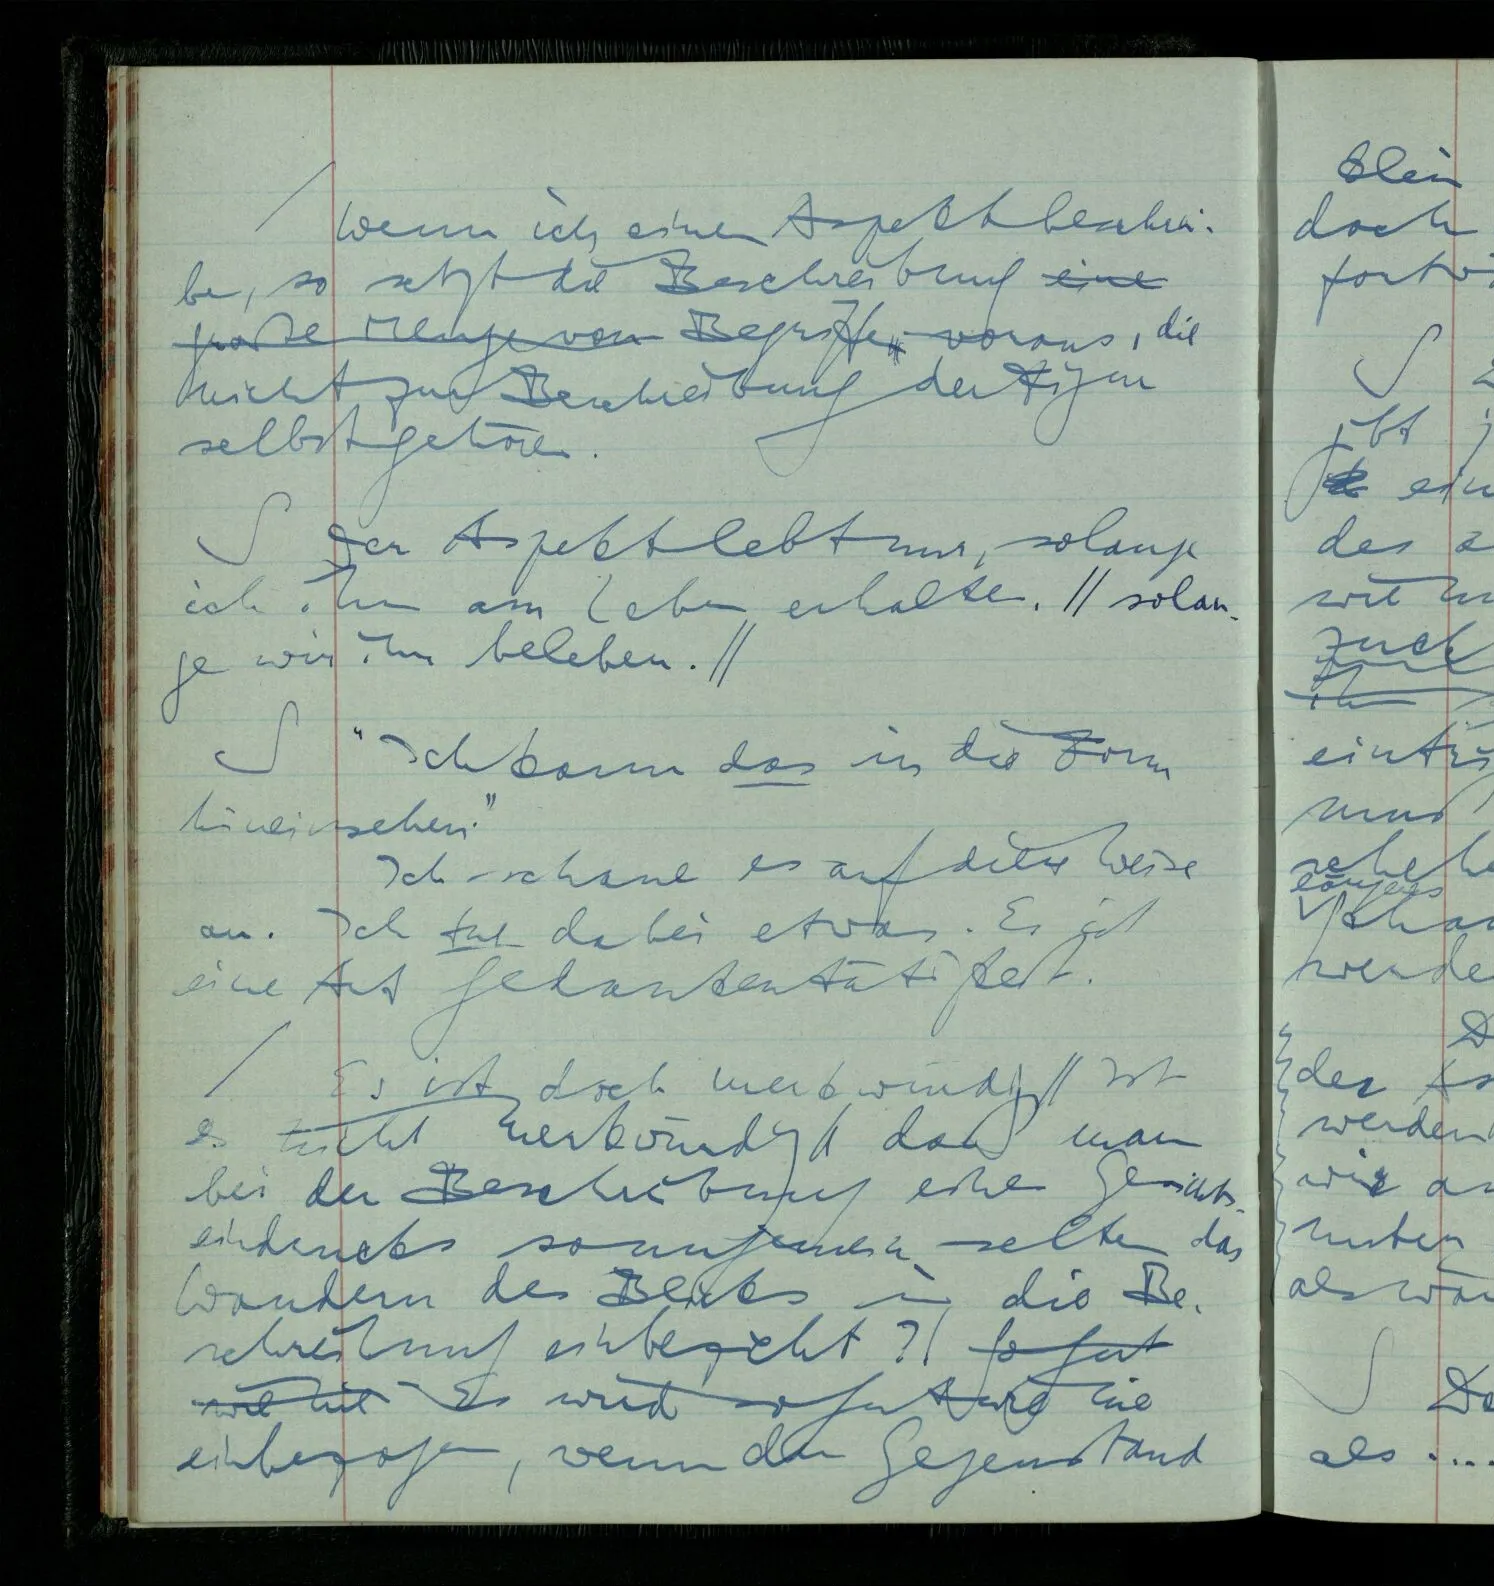 / Wenn ich einen Aspekt beschrei-
be, so setzt die Beschreibung eine
große Menge von Begriffe voraus, die
nicht zur Beschreibung der Figur
selbst gehören.
S Der Aspekt lebt nur, solange
ich ihn am Leben erhalte. // solan-
ge wir ihn beleben. //
S "Ich kann das in die Form
hineinsehen."
Ich schaue es auf diese Weise
an. Ich tue dabei etwas. Es ist
eine Art Gedankentätigkeit.
/ Es ist doch merkwürdig // Ist
es nicht merkwürdig // daß man
bei der Beschreibung eines Gesichts-
eindrucks so ungemein selten das
Wandern des Blicks in die Be-
schreibung einbezieht?// So gut
wie nie Es wird so gut wie nie
einbezogen, wenn der Gegenstand
klein
doch
S
gibt
ein
des
wie
zuck
ihn
muß
längeres
werde
der
werden
wie
als wär
S
als ....